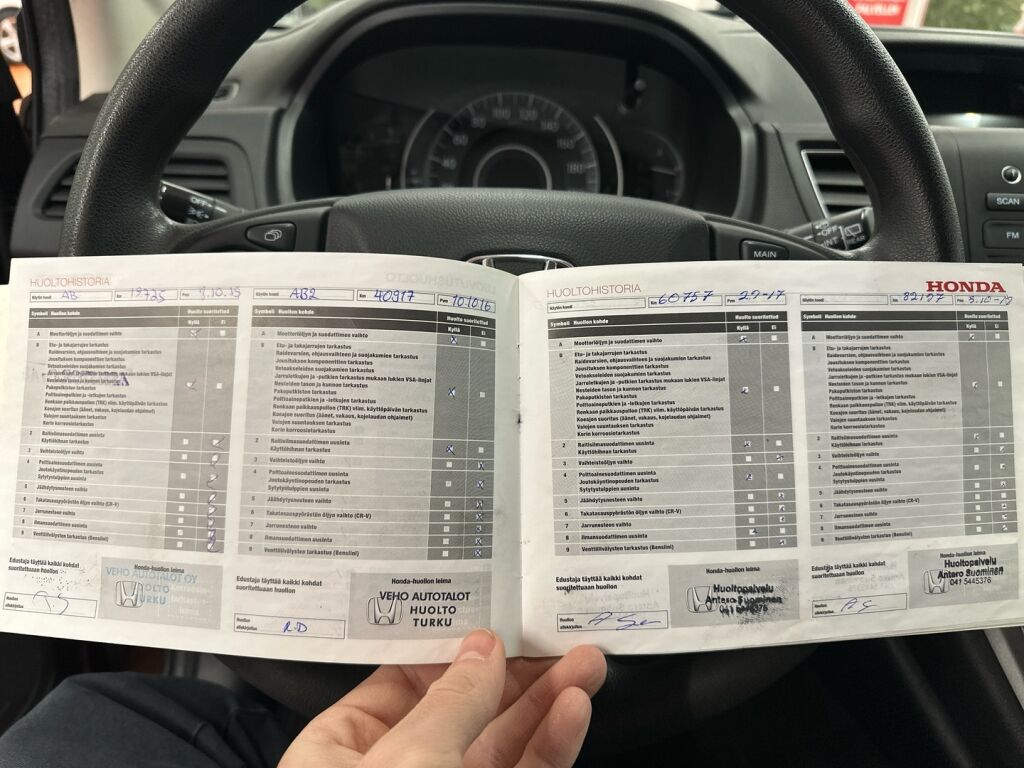 HUOLTOHISTORIA
Näytön koodi AB Km 19725 Pvm 9.10.15
Symboli Huollon kohde Huolto suoritettu
Kyllä Ei
A Moottoriöljyn ja suodattimen vaihto
B Etu- ja takajarrujen tarkastus
Raidevarsien, ohjausvaihteen ja suojakumien tarkastus
Jousituksen komponenttien tarkastus
Vetoakseleiden suojakumien tarkastus
Jarruletkujen ja -putkien tarkastus mukaan lukien VSA-linjat
Nesteiden tason ja kunnon tarkastus
Pakoputkiston tarkastus
Polttoaineputkien ja -letkujen tarkastus
Renkaan paikkauspullon (TRK) viim. käyttöpäivän tarkastus
Konejan suoritus (äänet, vakaus, kojelaudan ohjaimet)
Valojen suuntauksen tarkastus
Korin korroosiotarkastus
2 Raitisilmasuodattimen uusinta
Käyttöhihnan tarkastus
3 Vaihteistoöljyn vaihto
4 Polttoainesuodattimen uusinta
Joutokäyntinopeuden tarkastus
Sytytystulppien uusinta
5 Jäähdytysnesteen vaihto
6 Takatasauspyörästön öljyn vaihto (CR-V)
7 Jarrunesteen vaihto
8 Ilmansuodattimen uusinta
9 Venttiilivälysten tarkastus (Bensiini)
Edustaja täyttää kaikki kohdat
suoritetuan huollon
Honda-huollon leima
VEHO AUTOTALOT OY
HUOLTO
TURKU
Huollon
allekirjoitus
Näytön koodi AB2 Km 40917 Pvm 101016
Symboli Huollon kohde Huolto suoritettu
Kyllä Ei
A Moottoriöljyn ja suodattimen vaihto
B Etu- ja takajarrujen tarkastus
Raidevarsien, ohjausvaihteen ja suojakumien tarkastus
Jousituksen komponenttien tarkastus
Vetoakseleiden suojakumien tarkastus
Jarruletkujen ja -putkien tarkastus mukaan lukien VSA-linjat
Nesteiden tason ja kunnon tarkastus
Pakoputkiston tarkastus
Polttoaineputkien ja -letkujen tarkastus
Renkaan paikkauspullon (TRK) viim. käyttöpäivän tarkastus
Konejan suoritus (äänet, vakaus, kojelaudan ohjaimet)
Valojen suuntauksen tarkastus
Korin korroosiotarkastus
2 Raitisilmasuodattimen uusinta
Käyttöhihnan tarkastus
3 Vaihteistoöljyn vaihto
4 Polttoainesuodattimen uusinta
Joutokäyntinopeuden tarkastus
Sytytystulppien uusinta
5 Jäähdytysnesteen vaihto
6 Takatasauspyörästön öljyn vaihto (CR-V)
7 Jarrunesteen vaihto
8 Ilmansuodattimen uusinta
9 Venttiilivälysten tarkastus (Bensiini)
Edustaja täyttää kaikki kohdat
suoritetuan huollon
Honda-huollon leima
VEHO AUTOTALOT
HUOLTO
TURKU
Huollon
allekirjoitus R.D
HUOLTOHISTORIA
Näytön koodi Km 60757 Pvm 2.9-17
Symboli Huollon kohde Huolto suoritettu
Kyllä Ei
A Moottoriöljyn ja suodattimen vaihto
B Etu- ja takajarrujen tarkastus
Raidevarsien, ohjausvaihteen ja suojakumien tarkastus
Jousituksen komponenttien tarkastus
Vetoakseleiden suojakumien tarkastus
Jarruletkujen ja -putkien tarkastus mukaan lukien VSA-linjat
Nesteiden tason ja kunnon tarkastus
Pakoputkiston tarkastus
Polttoaineputkien ja -letkujen tarkastus
Renkaan paikkauspullon (TRK) viim. käyttöpäivän tarkastus
Konejan suoritus (äänet, vakaus, kojelaudan ohjaimet)
Valojen suuntauksen tarkastus
Korin korroosiotarkastus
2 Raitisilmasuodattimen uusinta
Käyttöhihnan tarkastus
3 Vaihteistoöljyn vaihto
4 Polttoainesuodattimen uusinta
Joutokäyntinopeuden tarkastus
Sytytystulppien uusinta
5 Jäähdytysnesteen vaihto
6 Takatasauspyörästön öljyn vaihto (CR-V)
7 Jarrunesteen vaihto
8 Ilmansuodattimen uusinta
9 Venttiilivälysten tarkastus (Bensiini)
Edustaja täyttää kaikki kohdat
suoritetuan huollon
Honda-huollon leima
Huoltopalvelu
Antero Suominen
041 5445376
Huollon
allekirjoitus
HONDA
Näytön koodi Km 82127 Pvm 5.10-19
Symboli Huollon kohde Huolto suoritettu
Kyllä Ei
A Moottoriöljyn ja suodattimen vaihto
B Etu- ja takajarrujen tarkastus
Raidevarsien, ohjausvaihteen ja suojakumien tarkastus
Jousituksen komponenttien tarkastus
Vetoakseleiden suojakumien tarkastus
Jarruletkujen ja -putkien tarkastus mukaan lukien VSA-linjat
Nesteiden tason ja kunnon tarkastus
Pakoputkiston tarkastus
Polttoaineputkien ja -letkujen tarkastus
Renkaan paikkauspullon (TRK) viim. käyttöpäivän tarkastus
Konejan suoritus (äänet, vakaus, kojelaudan ohjaimet)
Valojen suuntauksen tarkastus
Korin korroosiotarkastus
2 Raitisilmasuodattimen uusinta
Käyttöhihnan tarkastus
3 Vaihteistoöljyn vaihto
4 Polttoainesuodattimen uusinta
Joutokäyntinopeuden tarkastus
Sytytystulppien uusinta
5 Jäähdytysnesteen vaihto
6 Takatasauspyörästön öljyn vaihto (CR-V)
7 Jarrunesteen vaihto
8 Ilmansuodattimen uusinta
9 Venttiilivälysten tarkastus (Bensiini)
Edustaja täyttää kaikki kohdat
suoritetuan huollon
Honda-huollon leima
Huoltopalvelu
Antero Suominen
041 5445376
Huollon
allekirjoitus
OFF
MAIN
OFF
INT
REAR
SCAN
FM
40
60
80
100
120
140
160
180